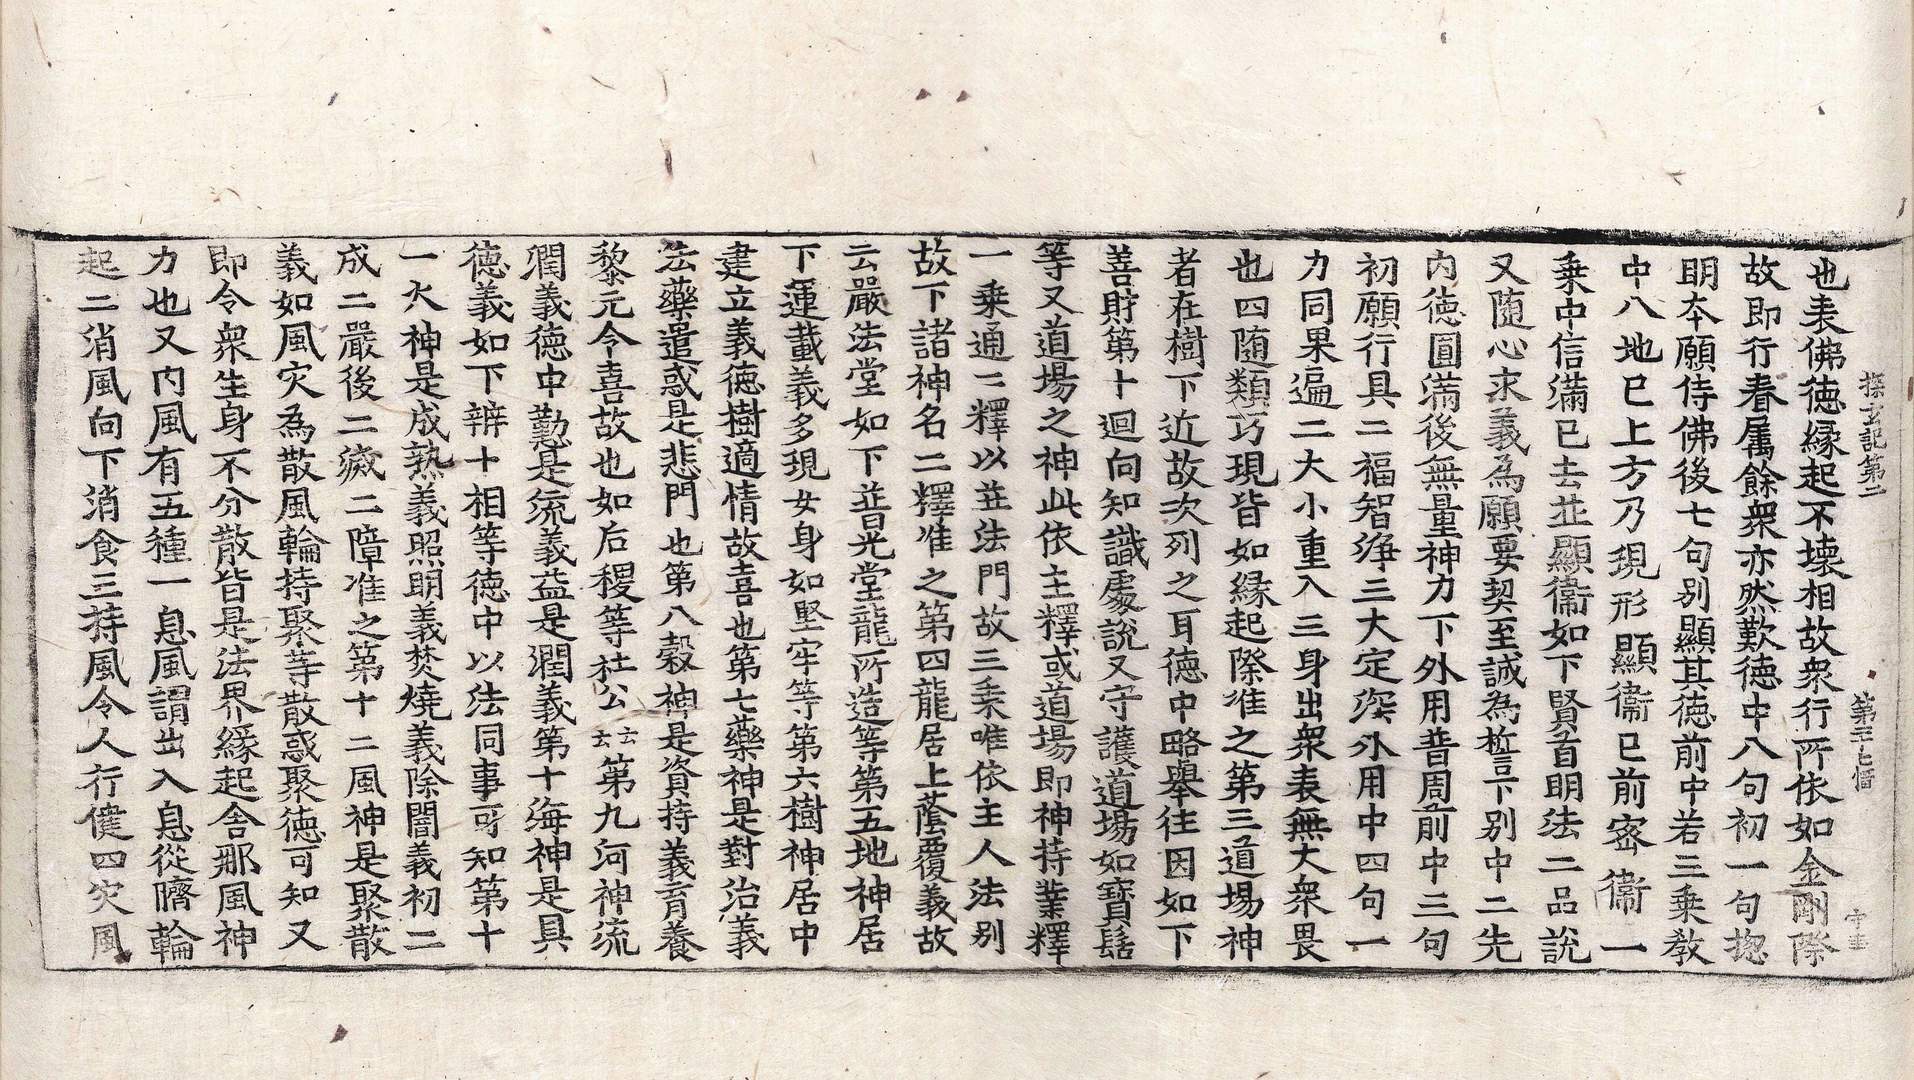 探玄記第二 第三七
也表佛徳縁起不壊相故衆行所依如金剛際
故即行眷属餘衆亦然歎徳中八句初一句揔
明本願侍佛後七句別顯其徳前中若三乗教
中八地已上方乃現形顯衞已前宻衞一
乗中信滿已去並顯衞如下賢首明法二品説
又随心求義為願要契至誠為誓下別中二先
内徳圓滿後無量神力下外用昔周前中三句
初願行具二福智浄三大定深外用中四句一
力同果遍二大小重入三身出衆表無大衆畏
也四随類巧現皆如縁起際准之第三道場神
者在樹下近故次列之耳徳中略舉往因如下
善財第十迴向知識處說又守護道場如寳髻
等又道場之神此依主釋或道場即神持業釋
一乗通二釋以並法門故三乗唯依主人法別
故下諸神名二釋准之第四龍居上蔭覆義故
云嚴法堂如下並普光堂龍所造等第五地神居
下運載義多現女身如堅牢等第六樹神居中
建立義徳樹適情故喜也第七藥神是對治義
法藥遣惑是悲門也第八穀神是資持義育養
黎元令喜故也如后稷等社公云云第九河神流
潤義徳中勤是流義益是潤義第十海神是具
徳義如下辨十相等徳中以法同事可知第十
一火神是成熟義照明義焚燒義除闇義初二
成二嚴後二滅二障准之第十二風神是聚散
義如風灾為散風輪持聚等散惑聚徳可知又
即令衆生身不分散皆是法界縁起舎那風神
力也又内風有五種一息風謂出入息從臍輪
起二消風向下消食三持風令人行健四灾風